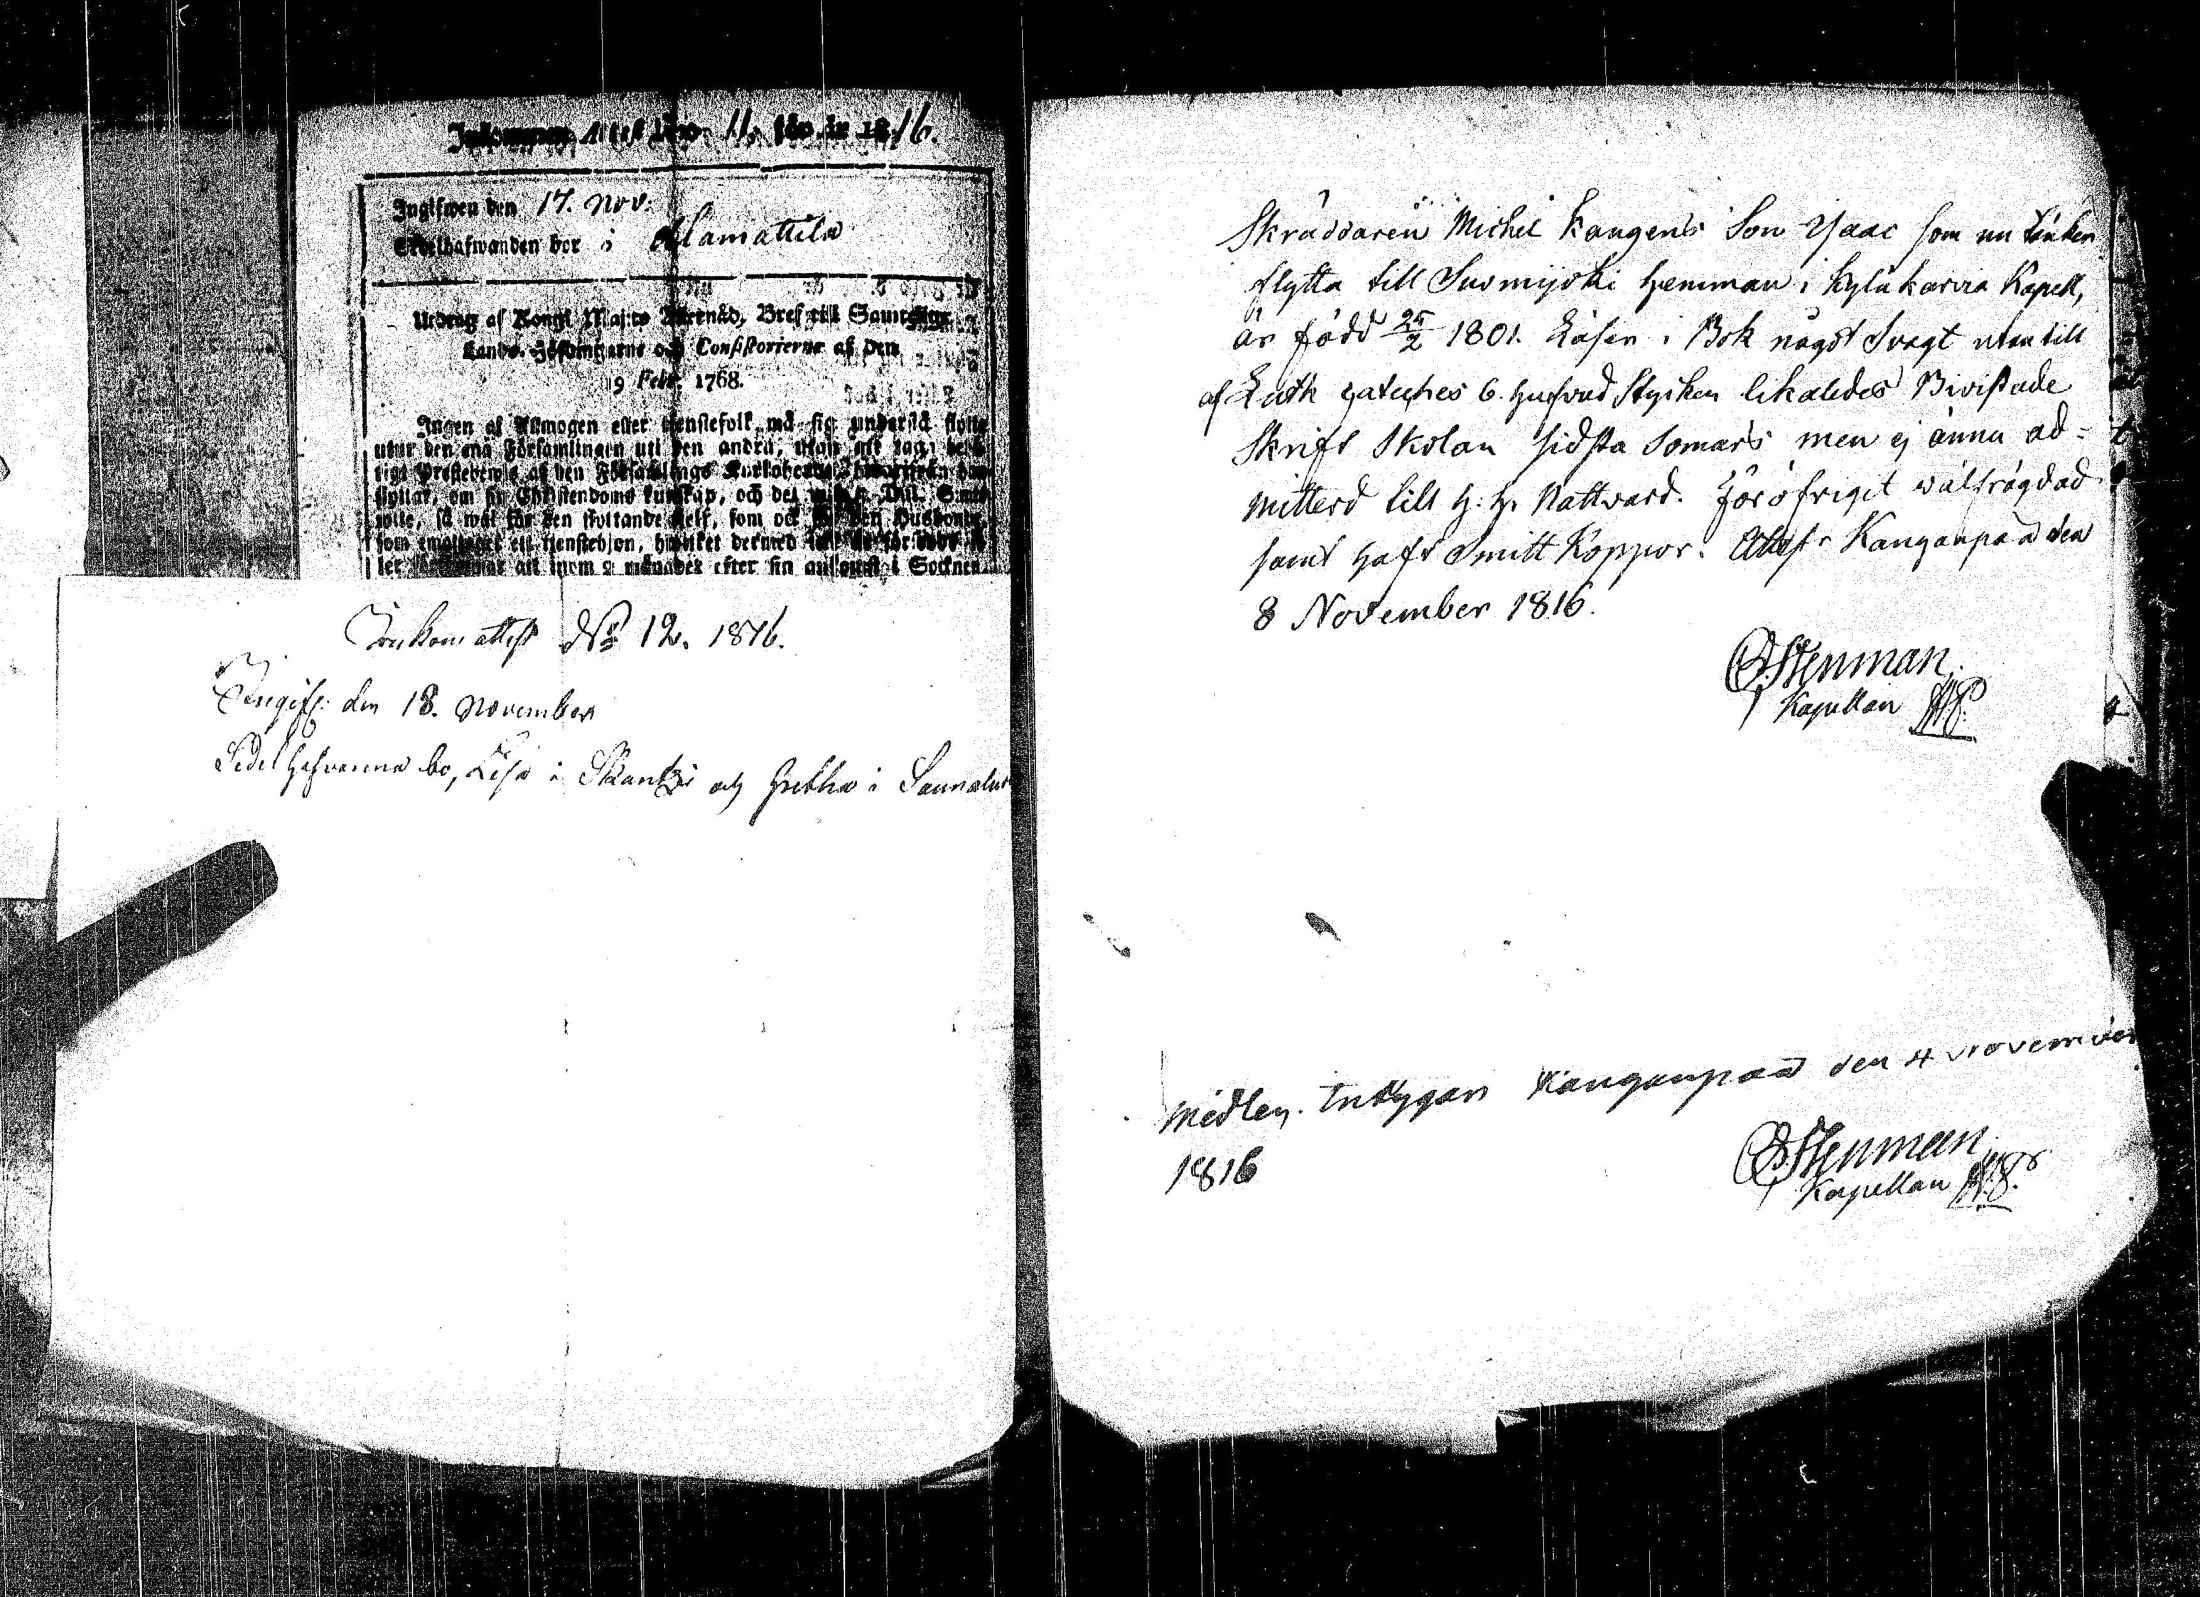 Inkommen Attest N:o 11. för år 1816.
Ingifwen den 17. Nov.
Sedelhafwanden bor i Alamattila
Utdrag af Kongl. Maj:ts Bref till Samtelige
Lands-Höfdingarne och Consistorierne af den
9 Febr. 1768.
Ingen af Allmogen eller tjenstefolk må sig understå flytta
utur den ena Församlingen uti den andra, utan att taga
Prestebewis af den Församlings Kyrkoherde
flyttar, om sin Christendoms kunskap, och det wid 2 Dal. S:mt
wite, så wäl för den flyttande sjelf, som ock för den Husbonde,
som emottager ett tjenstehjon, hwilket dermed icke är försedt
att inom 2 månader efter sin ankomst i Socknen
Inkom attest N:o 12. 1816.
Ingif: den 18. November
Sedelhafvarena bo, Lisa i Skantzi och Gretha i
Skräddaren Michel Kangens Son Isaac som nu tänker
flytta till Suomijoki hemman i Kylä karvia Kapell,
är född 25/2 1801. Läser i Bok något Svagt utan till
af Luth Cateches 6. hufvud Stycken likaledes Bivistade
Skrift Skolan sidsta Somars men ej ännu ad=
mitterd till H: H. Nattward. För öfrigit wälfrägdad
samt haft Smitt Koppor. Attest. Kangänpää den
8 November 1816.
Stenman
Kapellan
Medlen. Intygar Kangänpää den 4 November
1816
Stenman
Kapellan